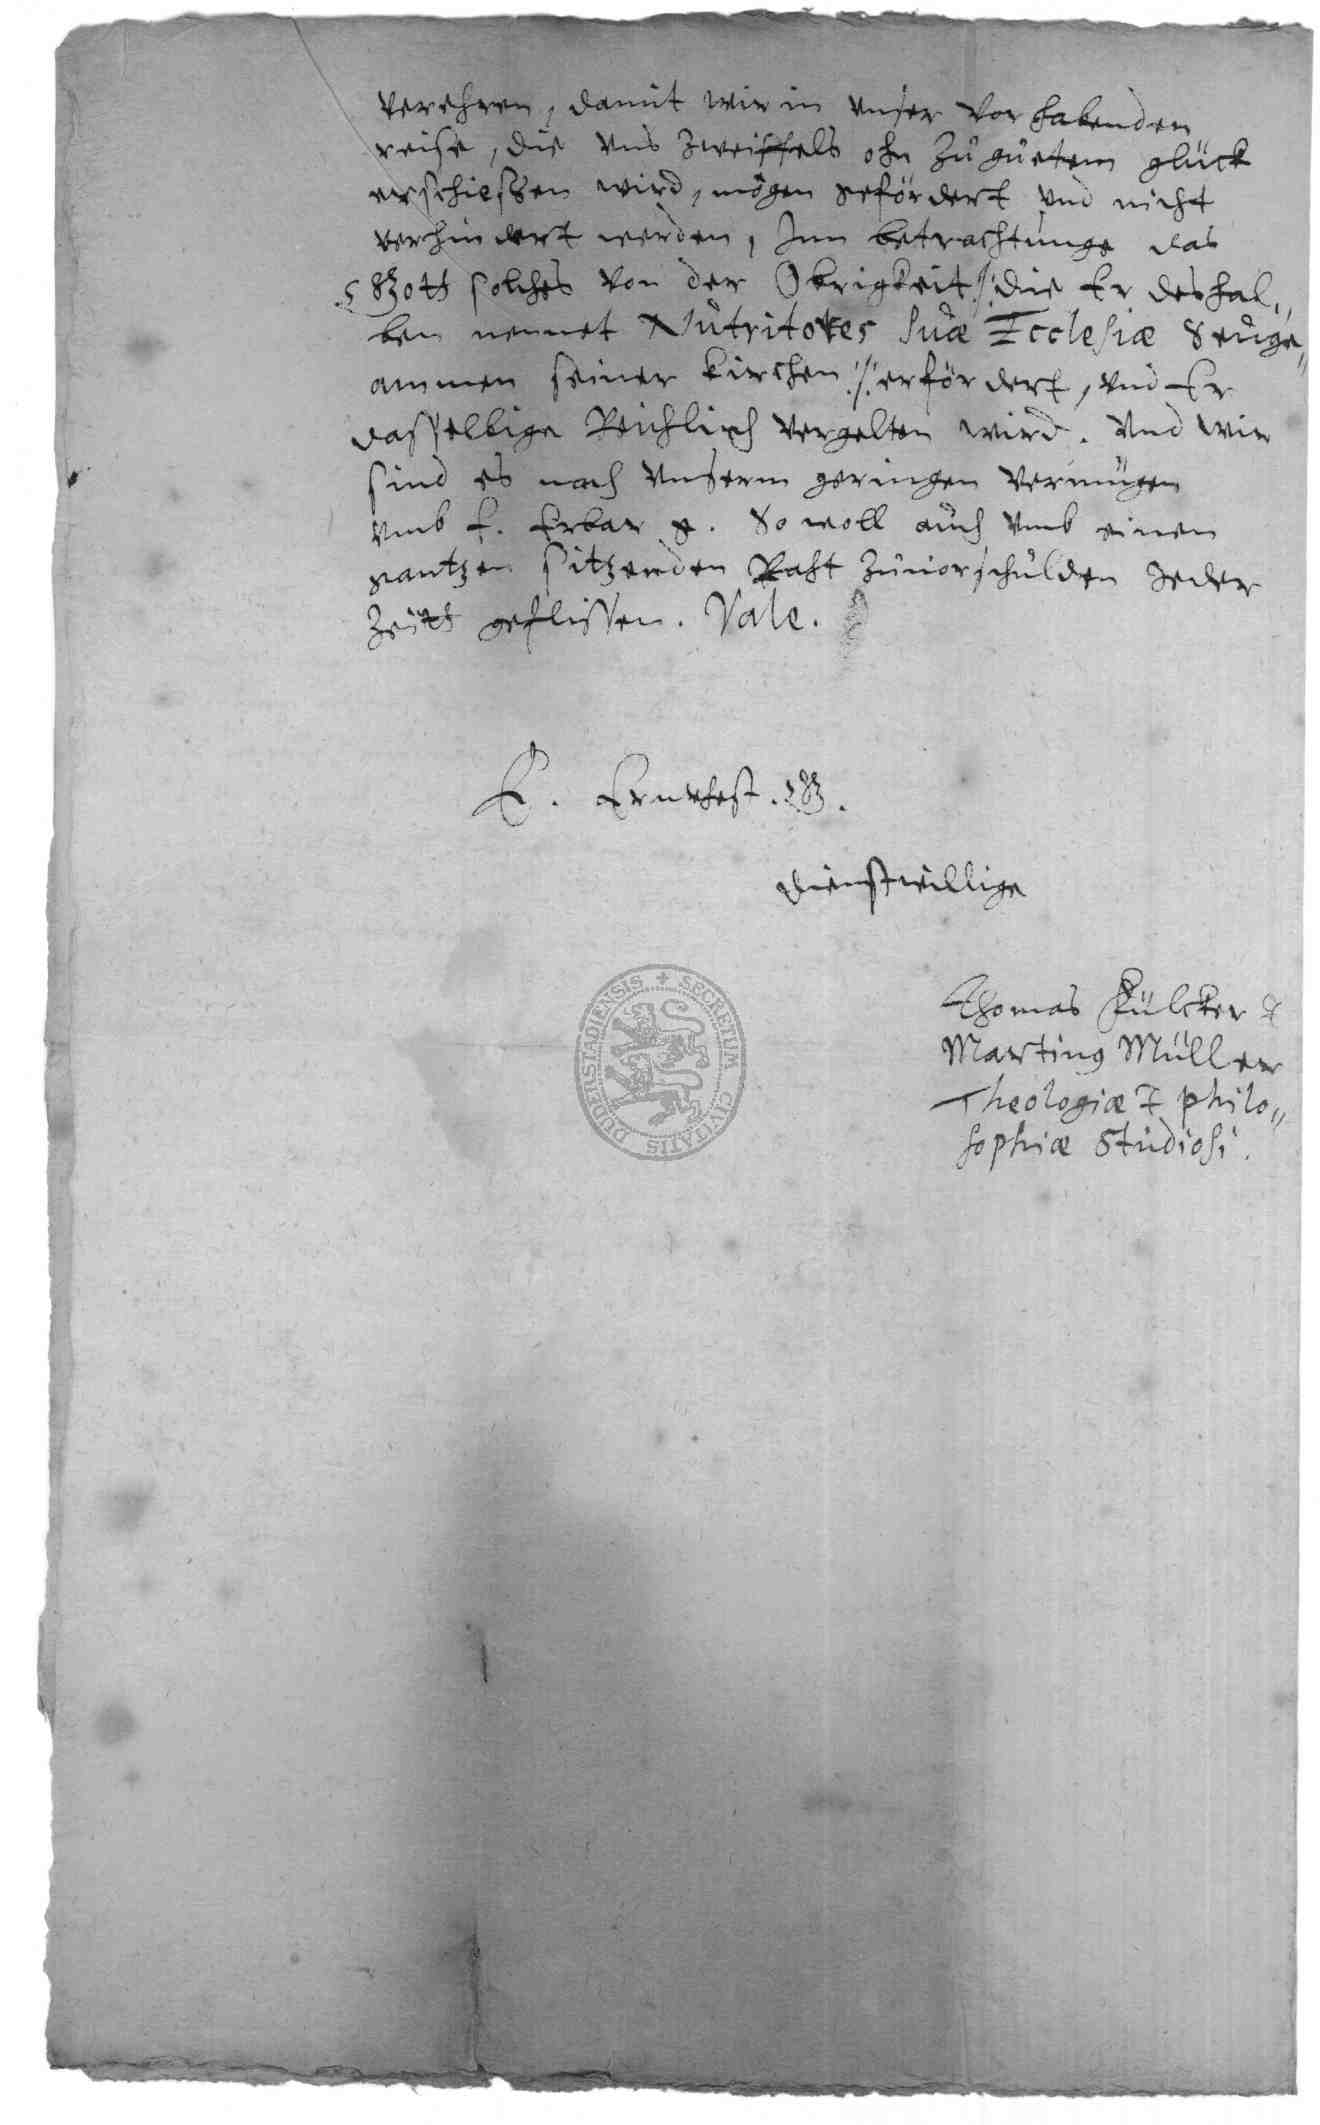 verehren, damit wir in unser vorhabenden
reise, die uns zweiffels ohn zu gutem glück
erschiessen wird, mögen gefördert und nicht
verhindert werden, Inn betrachtunge das
Gott solches von der Obrigkeit /: die Er deshal,,
ben nennet Nutritores suæ Ecclesiæ Seuge,,
ammen seiner kirchen :/ erfördert, und Er
dasselbige Reichlich vergelten wird. Und wir
sind es nach unserm geringen vermügen
umb E. Erbar g. So woll auch umb einen
gantzen sitzenden Raht zuuorschulden Jeder
Zeitt geflissen. Vale.
E. Ernvhest. G.
dienstwillige
Thomas Külcker &
Martinus Müller
Theologiæ & philo,,
sophiæ Studiosi.
SECRETUM CIVITATIS DUDERSTADIENSIS